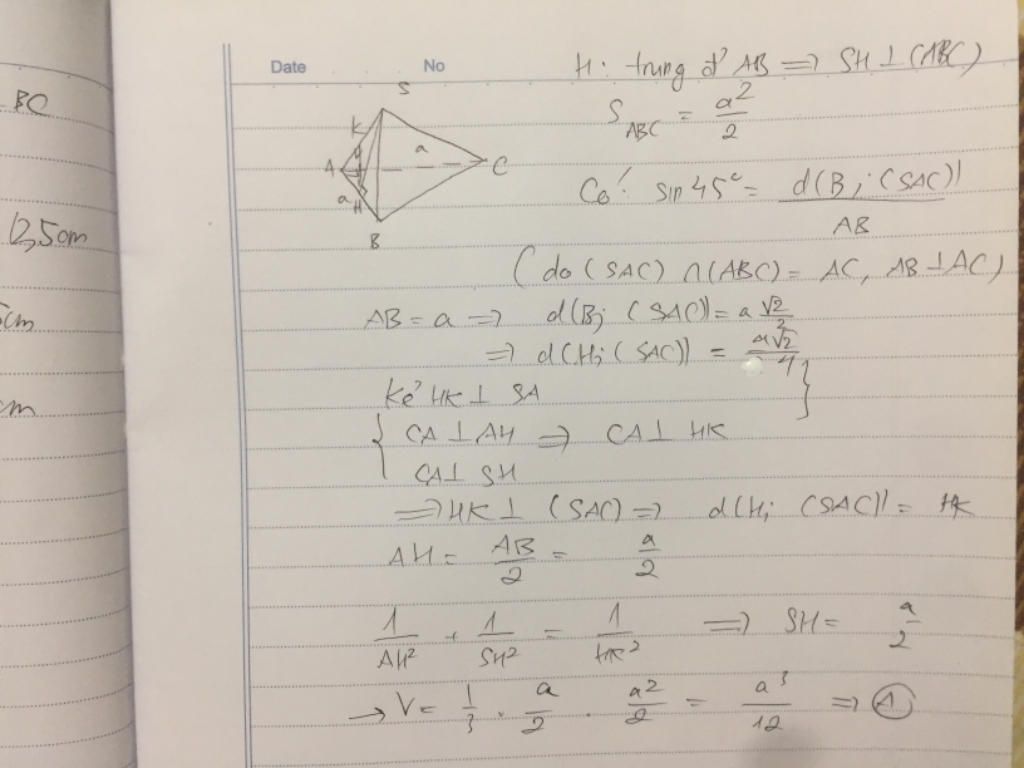 BC
12,5cm
5cm
cm
Date No
H: trung đ' AB ⇒ SH ⊥ (ABC)
S
K
A a C
a H
B
S_ABC = a²/2
Có: sin 45° = d(B; (SAC))/AB
(do (SAC) ∩ (ABC) = AC, AB ⊥ AC)
AB = a ⇒ d(B; (SAC)) = a √2/2
⇒ d(H; (SAC)) = a√2/4
Kẻ HK ⊥ SA
{ CA ⊥ AH ⇒ CA ⊥ HK
CA ⊥ SH
⇒ HK ⊥ (SAC) ⇒ d(H; (SAC)) = HK
AH = AB/2 = a/2
1/AH² + 1/SH² = 1/HK² ⇒ SH = a/2
→ V = 1/3 . a/2 . a²/2 = a³/12 ⇒ A